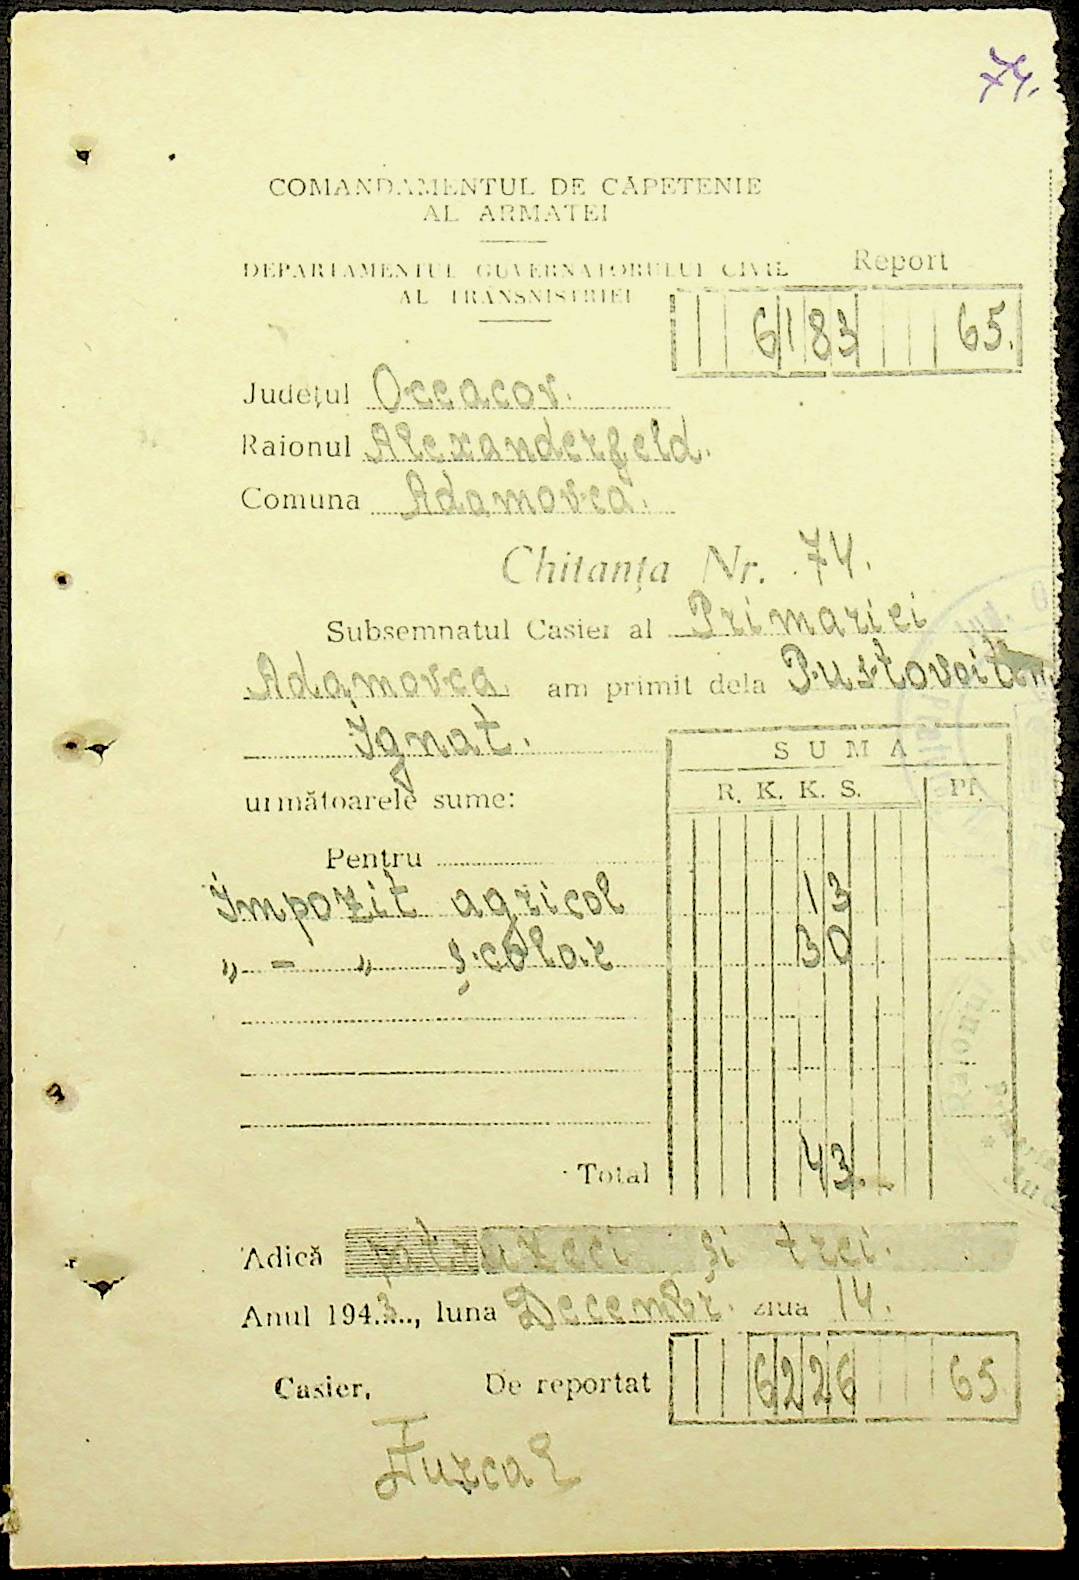 74.
COMANDAMENTUL DE CĂPETENIE
AL ARMATEI
DEPARTAMENTUL GUVERNATORULUI CIVIL
AL TRANSNISTRIEI
Report
6183 65.
Județul Oceacov.
Raionul Alexanderfeld.
Comuna Adamovca.
Chitanța Nr. 74.
Subsemnatul Casier al Primariei
Adamovca am primit dela Pustovoit
Ignat.
următoarele sume:
SUMA
R. K. K. S. Pf.
Pentru
Impozit agricol 13
„ - „ școlar 30
Total 43.-
Adică patruzeci și trei.
Anul 1943., luna Decembr. ziua 14.
Casier, De reportat 6226 65
Raionul